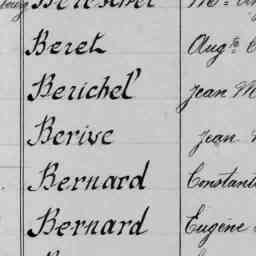 Beret Augte
Berichel Jean M
Berive Jean
Bernard Constant
Bernard Eugène